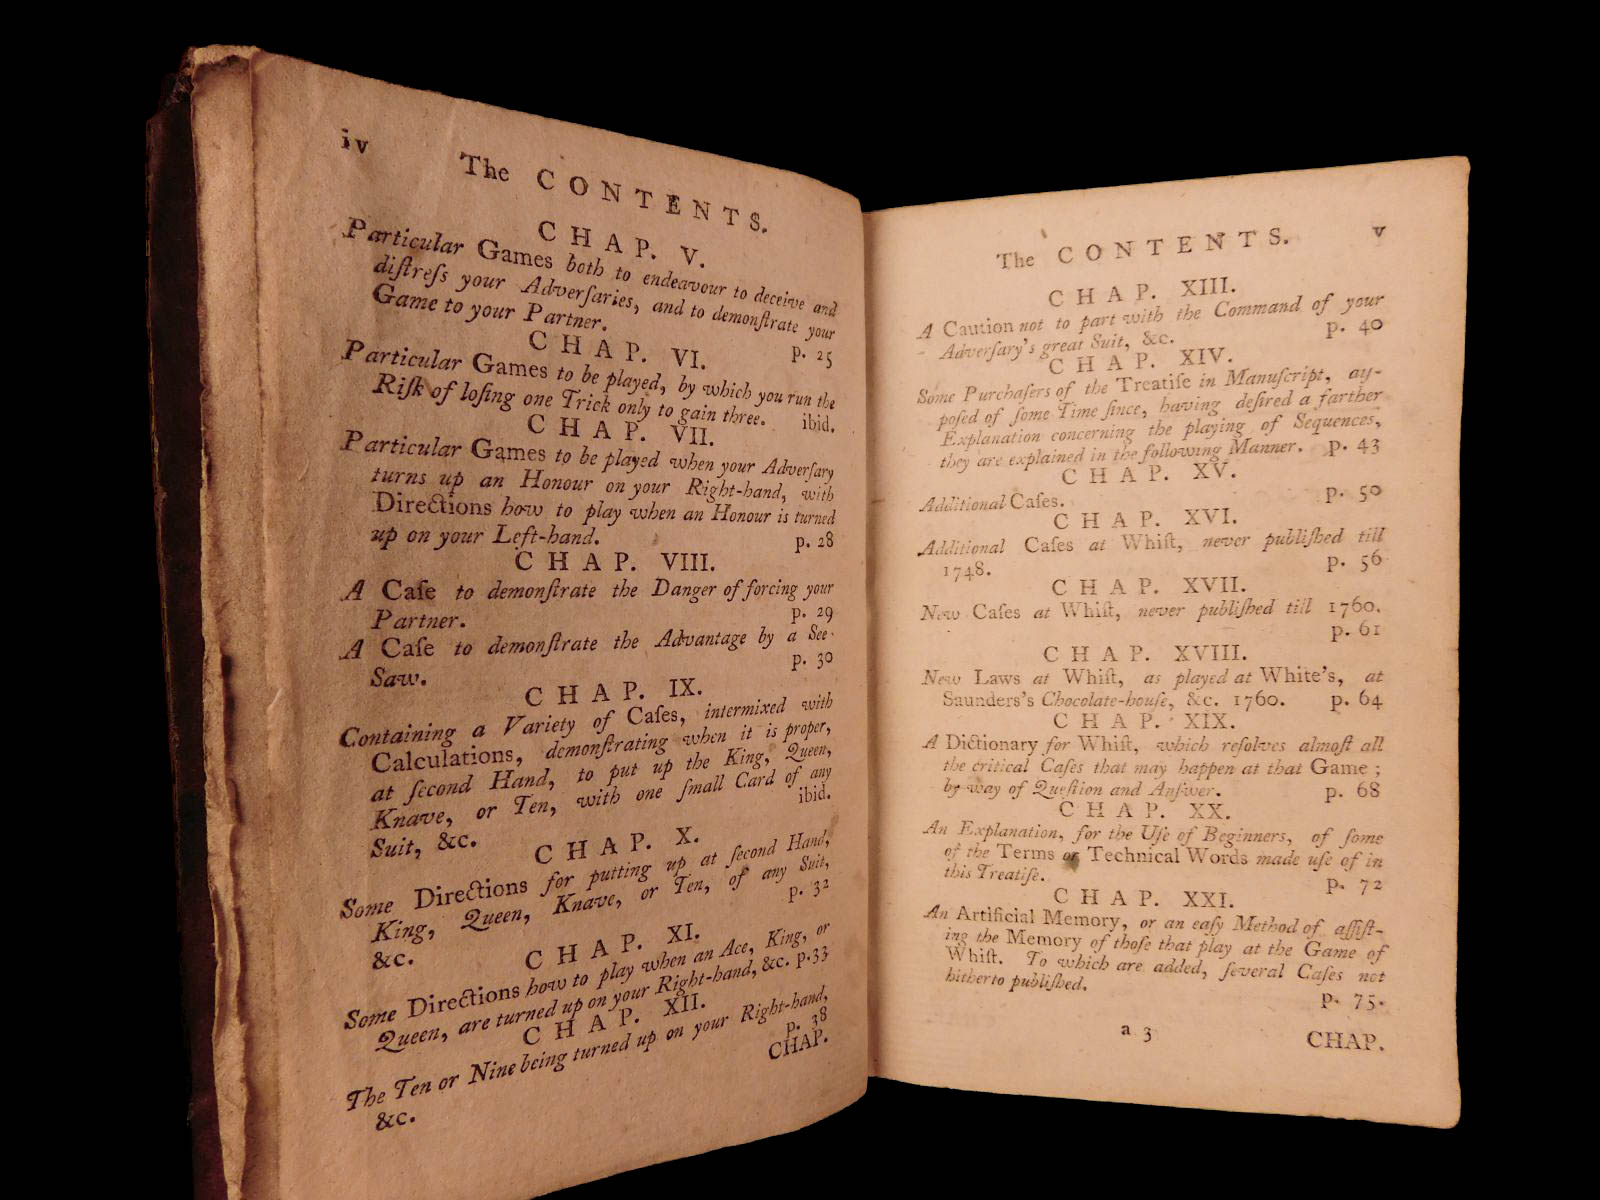 iv
The CONTENTS.
CHAP. V.
Particular Games both to endeavour to deceive and
diſtreſs your Adverſaries, and to demonſtrate your
Game to your Partner. p. 25
CHAP. VI.
Particular Games to be played, by which you run the
Riſk of loſing one Trick only to gain three. ibid.
CHAP. VII.
Particular Games to be played when your Adverſary
turns up an Honour on your Right-hand, with
Directions how to play when an Honour is turned
up on your Left-hand. p. 28
CHAP. VIII.
A Caſe to demonſtrate the Danger of forcing your
Partner. p. 29
A Caſe to demonſtrate the Advantage by a See-
Saw. p. 30
CHAP. IX.
Containing a Variety of Caſes, intermixed with
Calculations, demonſtrating when it is proper,
at ſecond Hand, to put up the King, Queen,
Knave, or Ten, with one ſmall Card of any
Suit, &c. ibid.
CHAP. X.
Some Directions for putting up at ſecond Hand,
King, Queen, Knave, or Ten, of any Suit,
&c. p. 32
CHAP. XI.
Some Directions how to play when an Ace, King, or
Queen, are turned up on your Right-hand, &c. p. 33
CHAP. XII.
The Ten or Nine being turned up on your Right-hand,
&c. p. 38
CHAP.
The CONTENTS. v
CHAP. XIII.
A Caution not to part with the Command of your
Adverſary's great Suit, &c. p. 40
CHAP. XIV.
Some Purchaſers of the Treatiſe in Manuſcript, ay-
poſed of ſome Time ſince, having deſired a farther
Explanation concerning the playing of Sequences,
they are explained in the following Manner. p. 43
CHAP. XV.
Additional Caſes. p. 50
CHAP. XVI.
Additional Caſes at Whiſt, never publiſhed till
1748. p. 56
CHAP. XVII.
New Caſes at Whiſt, never publiſhed till 1760.
p. 61
CHAP. XVIII.
New Laws at Whiſt, as played at White's, at
Saunders's Chocolate-houſe, &c. 1760. p. 64
CHAP. XIX.
A Dictionary for Whiſt, which reſolves almoſt all
the critical Caſes that may happen at that Game ;
by way of Queſtion and Anſwer. p. 68
CHAP. XX.
An Explanation, for the Uſe of Beginners, of ſome
of the Terms or Technical Words made uſe of in
this Treatiſe. p. 72
CHAP. XXI.
An Artificial Memory, or an eaſy Method of aſſiſt-
ing the Memory of thoſe that play at the Game of
Whiſt. To which are added, ſeveral Caſes not
hitherto publiſhed. p. 75.
a 3 CHAP.